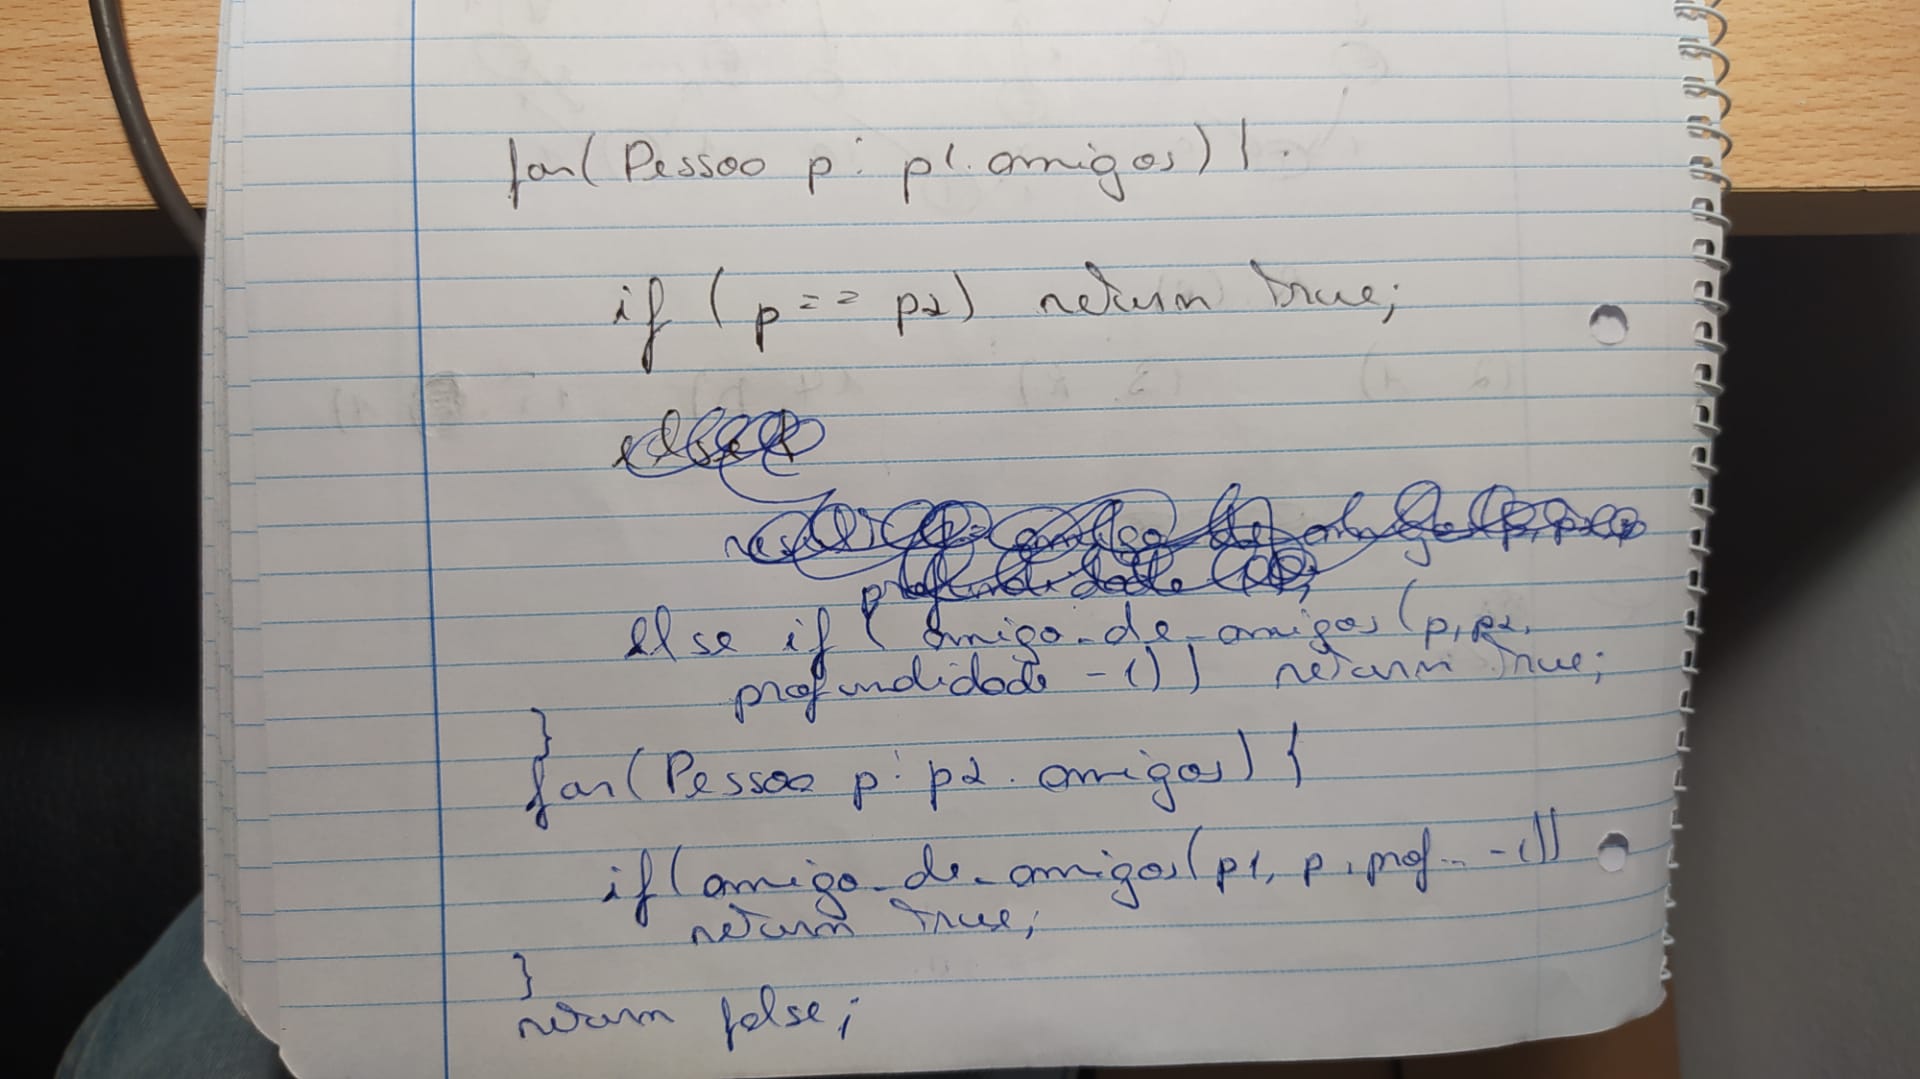 for(Pessoa p: p1.amigos) {
if (p == p2) return true;
else {
profundidade
else if (amigo_de_amigos (p, p2,
profundidade -1)) return true;
}
for(Pessoa p: p2. amigos) {
if(amigo_de_amigos(p1, p, prof.. -1))
return true;
}
return false;